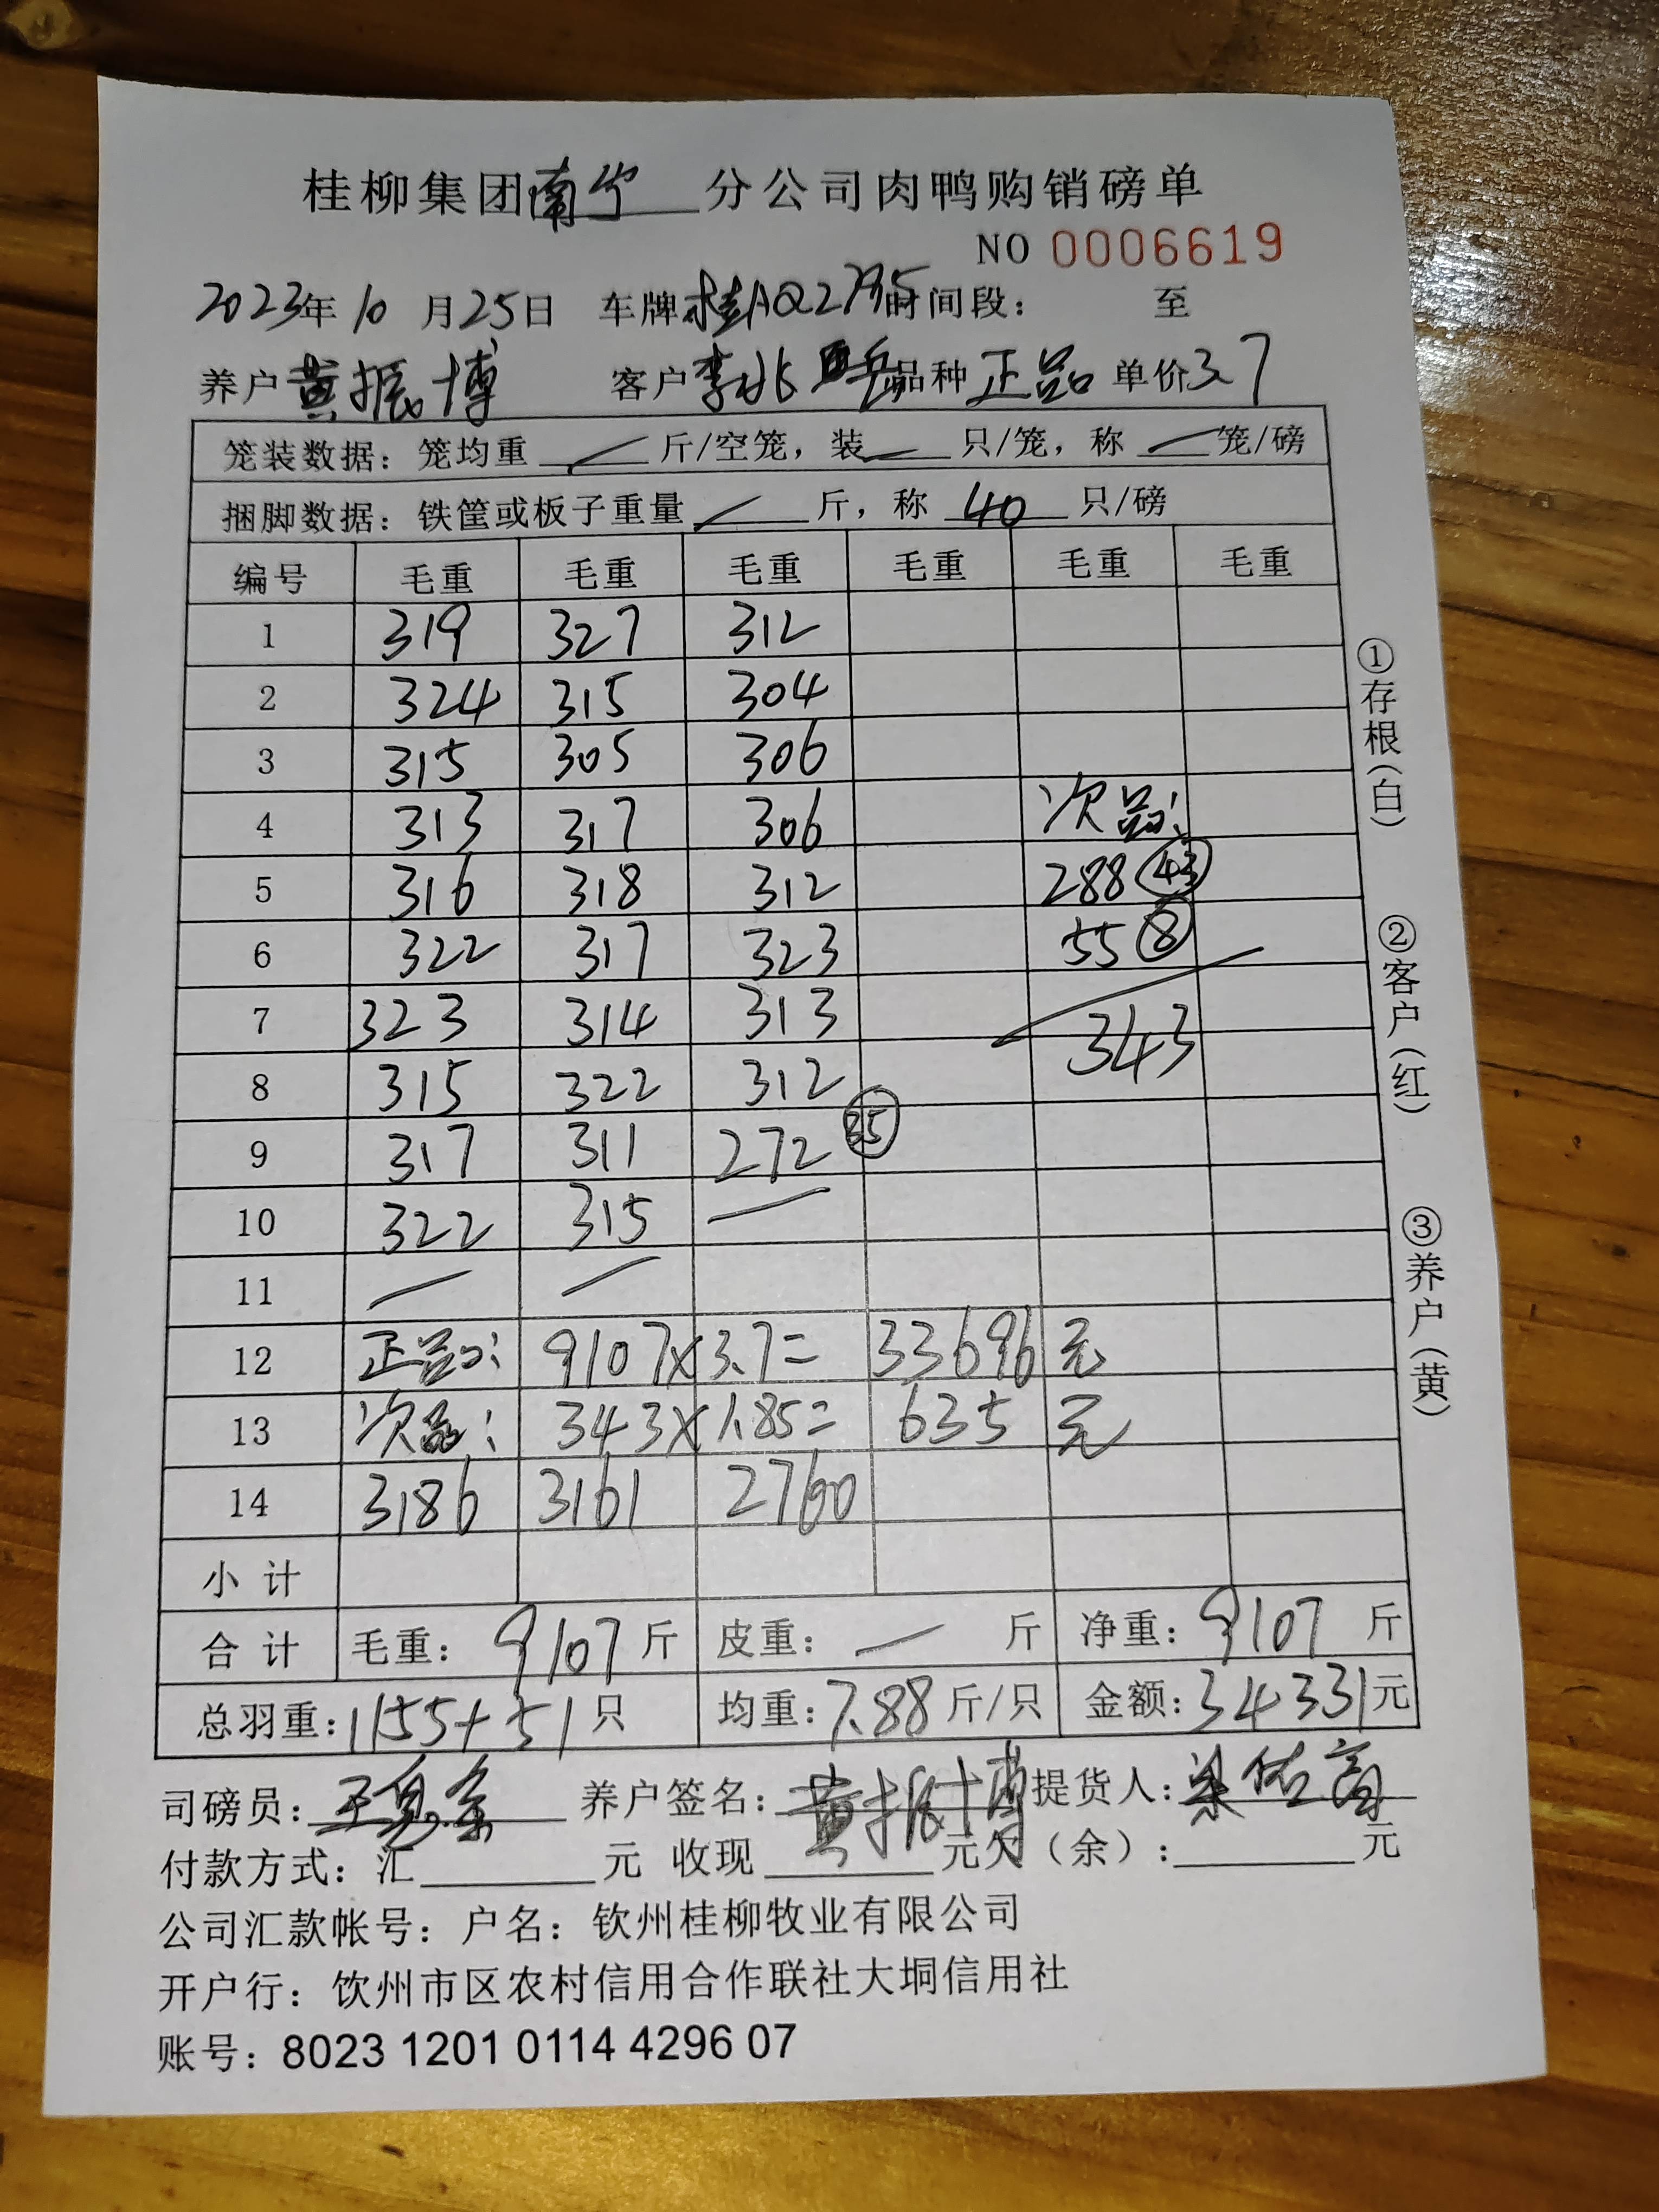 桂柳集团南宁分公司肉鸭购销磅单
NO 0006619
2023年10月25日 车牌桂AQ2795时间段: 至
养户黄振博 客户李兆 品种正品 单价3.7
笼装数据: 笼均重 — 斤/空笼, 装 — 只/笼, 称 — 笼/磅
捆脚数据: 铁筐或板子重量 — 斤, 称 40 只/磅
编号 毛重 毛重 毛重 毛重 毛重 毛重
1 319 327 312
2 324 315 304
3 315 305 306
4 313 317 306 次品:
5 316 318 312 288 43
6 322 317 323 55 8
7 323 314 313 343
8 315 322 312
9 317 311 272 35
10 322 315 —
11 — —
12 正品: 9107×3.7= 33696 元
13 次品: 343×1.85= 635 元
14 3186 3161 2760
小计
合计 毛重: 9107 斤 皮重: — 斤 净重: 9107 斤
总羽重: 1155+51 只 均重: 7.88 斤/只 金额: 34331元
司磅员: 养户签名: 黄振博 提货人: 梁佑高
付款方式: 汇 元 收现 元欠(余): 元
公司汇款帐号: 户名: 钦州桂柳牧业有限公司
开户行: 钦州市区农村信用合作联社大垌信用社
账号: 8023 1201 0114 4296 07
①存根(白)
②客户(红)
③养户(黄)